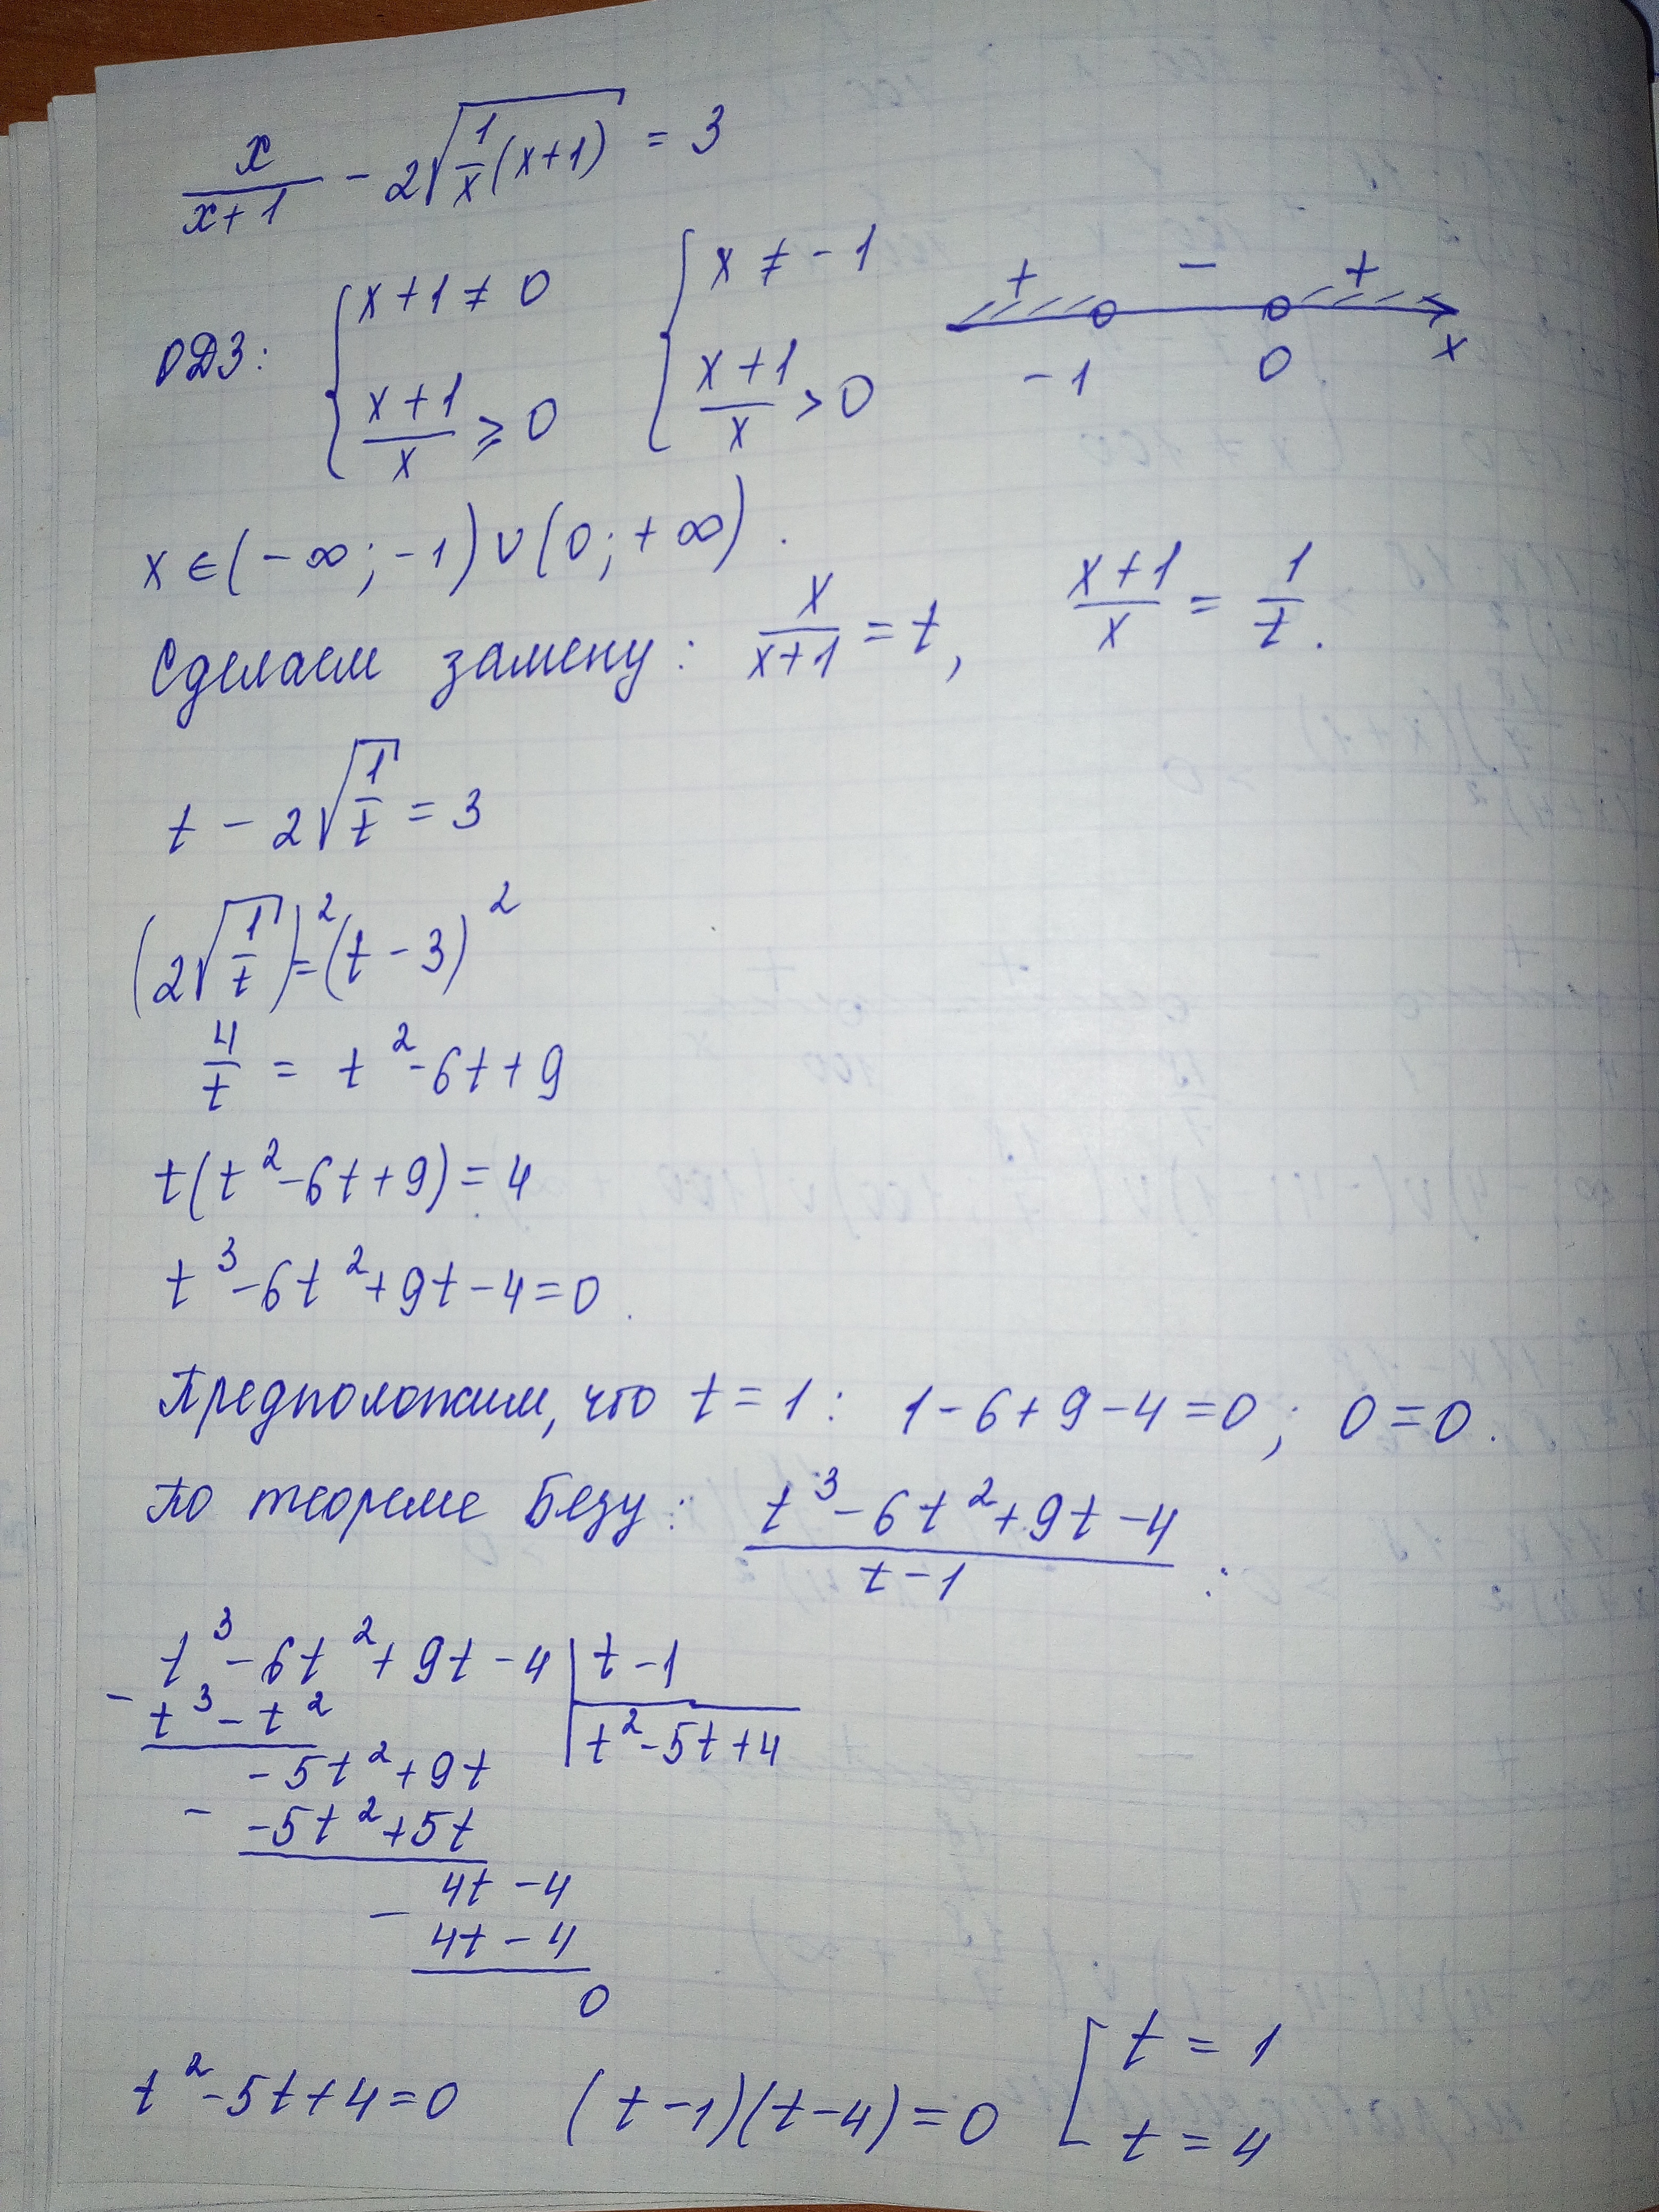 x/(x+1) - 2√(1/x (x+1)) = 3
ОДЗ: { x+1 ≠ 0 ; (x+1)/x ⩾ 0 { x ≠ -1 ; (x+1)/x > 0 + - + -1 0 x
x ∈ (-∞; -1) ∪ (0; +∞).
Сделаем замену: x/(x+1) = t, (x+1)/x = 1/t.
t - 2√(1/t) = 3
(2√(1/t))² = (t - 3)²
4/t = t² - 6t + 9
t(t² - 6t + 9) = 4
t³ - 6t² + 9t - 4 = 0.
Предположим, что t = 1: 1 - 6 + 9 - 4 = 0; 0 = 0.
По теореме Безу: (t³ - 6t² + 9t - 4)/(t - 1) :
t³ - 6t² + 9t - 4 | t - 1
- t³ - t² | t² - 5t + 4
-5t² + 9t
- -5t² + 5t
4t - 4
- 4t - 4
0
t² - 5t + 4 = 0 (t - 1)(t - 4) = 0 [ t = 1 ; t = 4